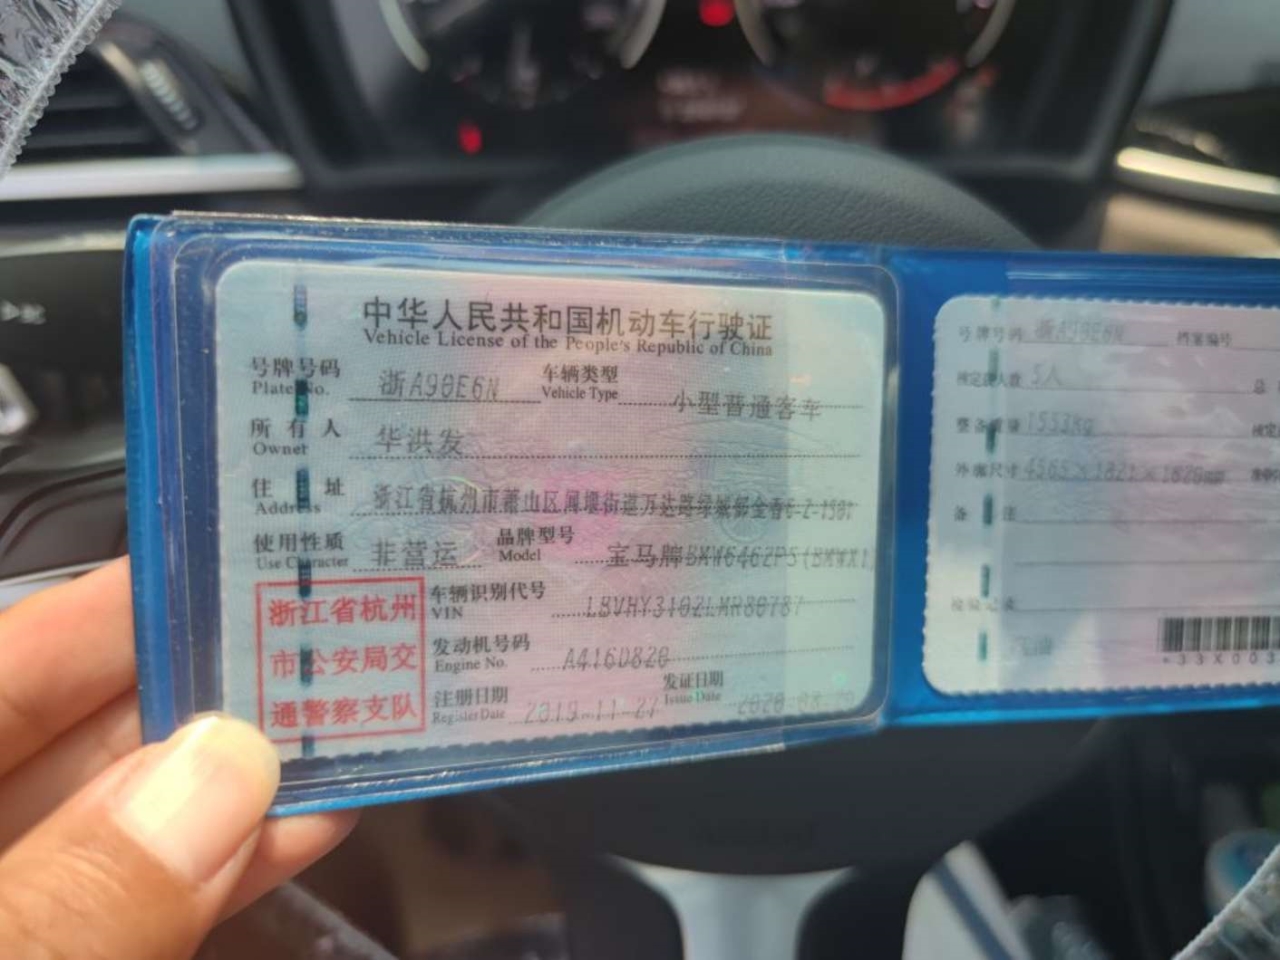 中华人民共和国机动车行驶证
Vehicle License of the People's Republic of China
号牌号码 浙A90E6N 车辆类型 小型普通客车
Plate No. Vehicle Type
所有人 华洪发
Owner
住址 浙江省杭州市萧山区闻堰街道万达路绿城郁金香6-2-1501
Address
使用性质 非营运 品牌型号 宝马牌BMW6462PS(BMWX1)
Use Character Model
浙江省杭州
市公安局交
通警察支队
车辆识别代号 LBVHY3102LMR80787
VIN
发动机号码 A416D820
Engine No.
注册日期 2019-11-27 发证日期 2020-08-
Register Date Issue Date
号牌号码 浙A90E6N 档案编号
核定载人数 5人 总
整备质量 1553kg 核定
外廓尺寸 4565×1821×1620mm
备注
检验记录
汽油
*33X003